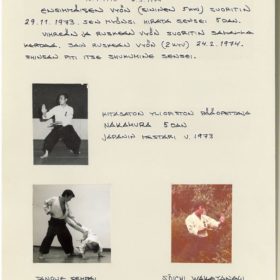 ENSIMMÄISEN VYÖN (SININEN 5 KYU) SUORITIN
29.11.1973. SEN MYÖNSI HIRATA SENSEI 5 DAN.
VIHREÄN JA RUSKEAN VYÖN SUORITIN SAMALLA
KERTAA. SAIN RUSKEAN VYÖN (2 KYU) 24.2.1974.
SHINSAN PITI ITSE SHUKUMINE SENSEI.
KITASATON YLIOPISTON PÄÄOPETTAJA
NAKAMURA 5 DAN
JAPANIN MESTARI V. 1973
SENPAI
SÔICHI